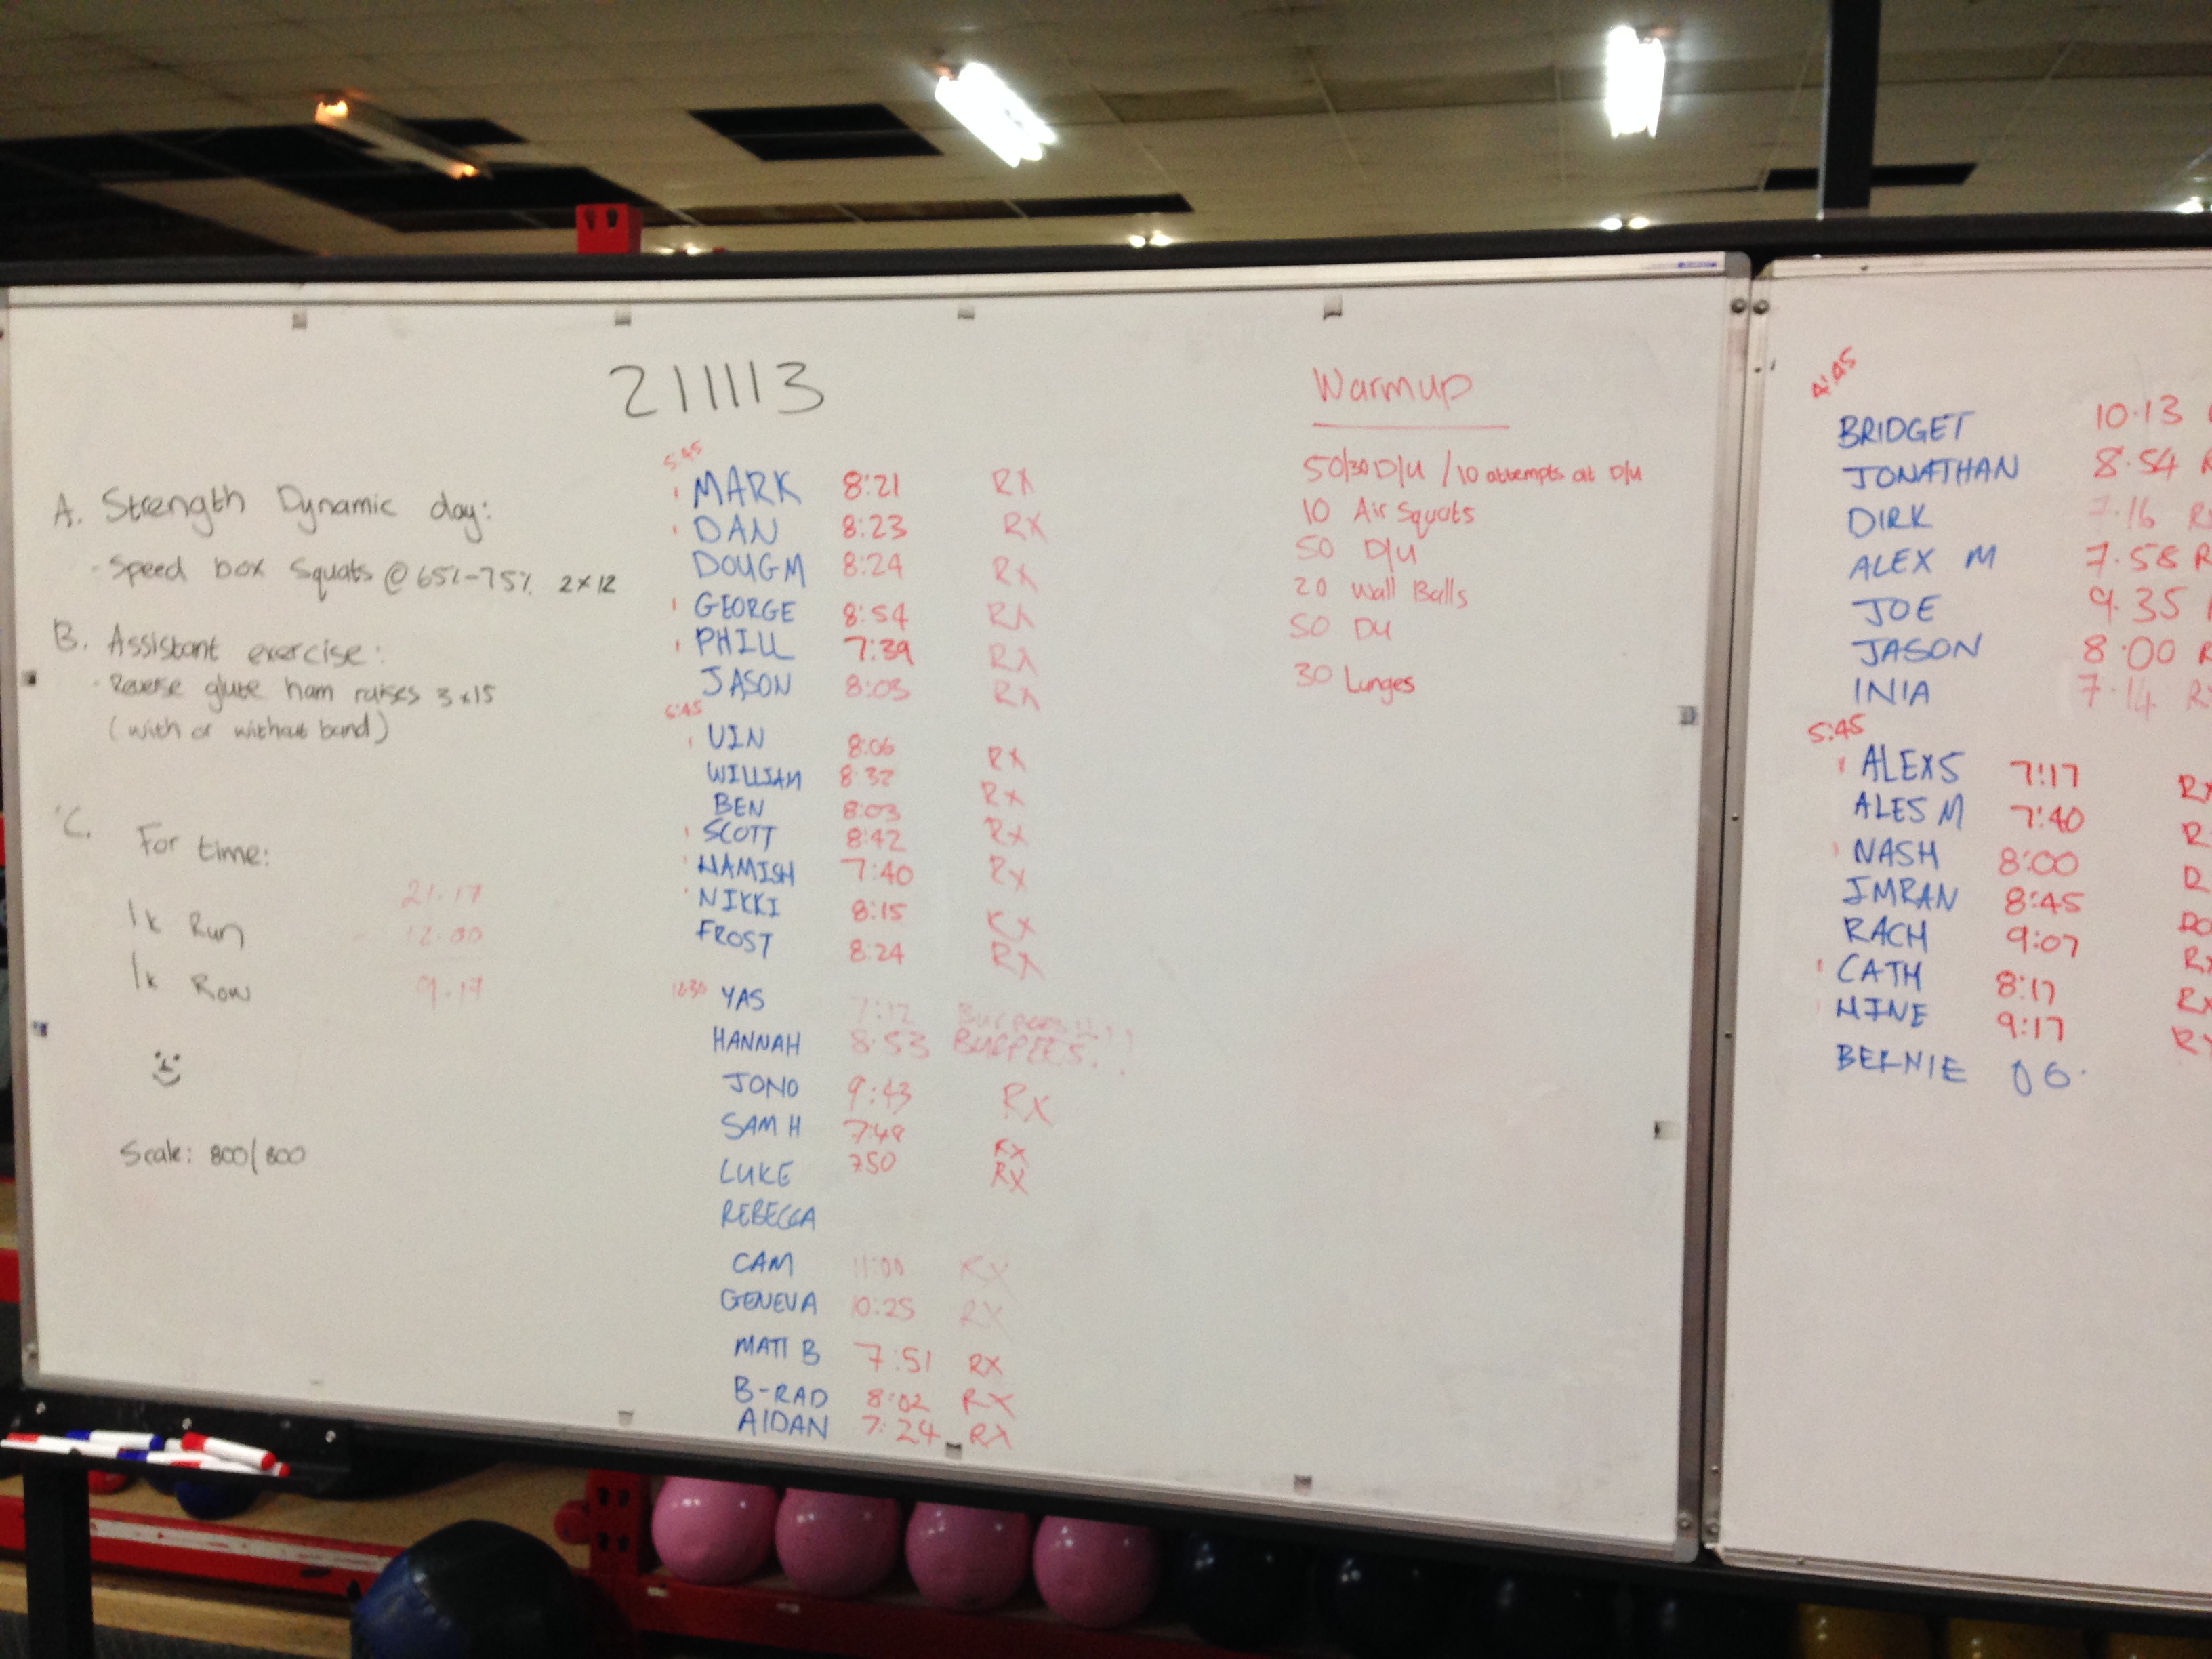 211113
A. Strength Dynamic day:
- Speed box squats @ 65%-75% 2x12
B. Assistant exercise:
- Reverse glute ham raises 3x15
(with or without band)
C. For time:
1k Run
1k Row
21.17
12.00
9.17
Scale: 800/800
5:45
MARK 8:21 RX
DAN 8:23 RX
DOUG M 8:24 RX
GEORGE 8:54 RX
PHILL 7:39 RX
JASON 8:03 RX
6:45
VIN 8:06 RX
WILLIAM 8:32 RX
BEN 8:03 RX
SCOTT 8:42
HAMISH 7:40 RX
NIKKI 8:15 RX
FROST 8:24 RX
1230 YAS 7:12 Burpees!!!!
HANNAH 8:53 BURPEES!!
JONO 9:43 RX
SAM H 7:48 RX
LUKE 750 RX
REBECCA
CAM 11:00 RX
GENEVA 10:25 RX
MATT B 7:51 RX
B-RAD 8:02 RX
AIDAN 7:24 RX
Warmup
50/30 D/U / 10 attempts at D/U
10 Air Squats
50 D/U
20 Wall Balls
50 DU
30 Lunges
4:45
BRIDGET 10.13
JONATHAN 8.54 R
DIRK 7.16 RX
ALEX M 7.58 R
JOE 9.35
JASON 8.00 R
INIA 7.14 RX
5:45
ALEX S 7:17 RX
ALES M 7:40 R
NASH 8:00 R
IMRAN 8:45
RACH 9:07 RX
CATH 8:17 RX
HINE 9:17 RX
BERNIE